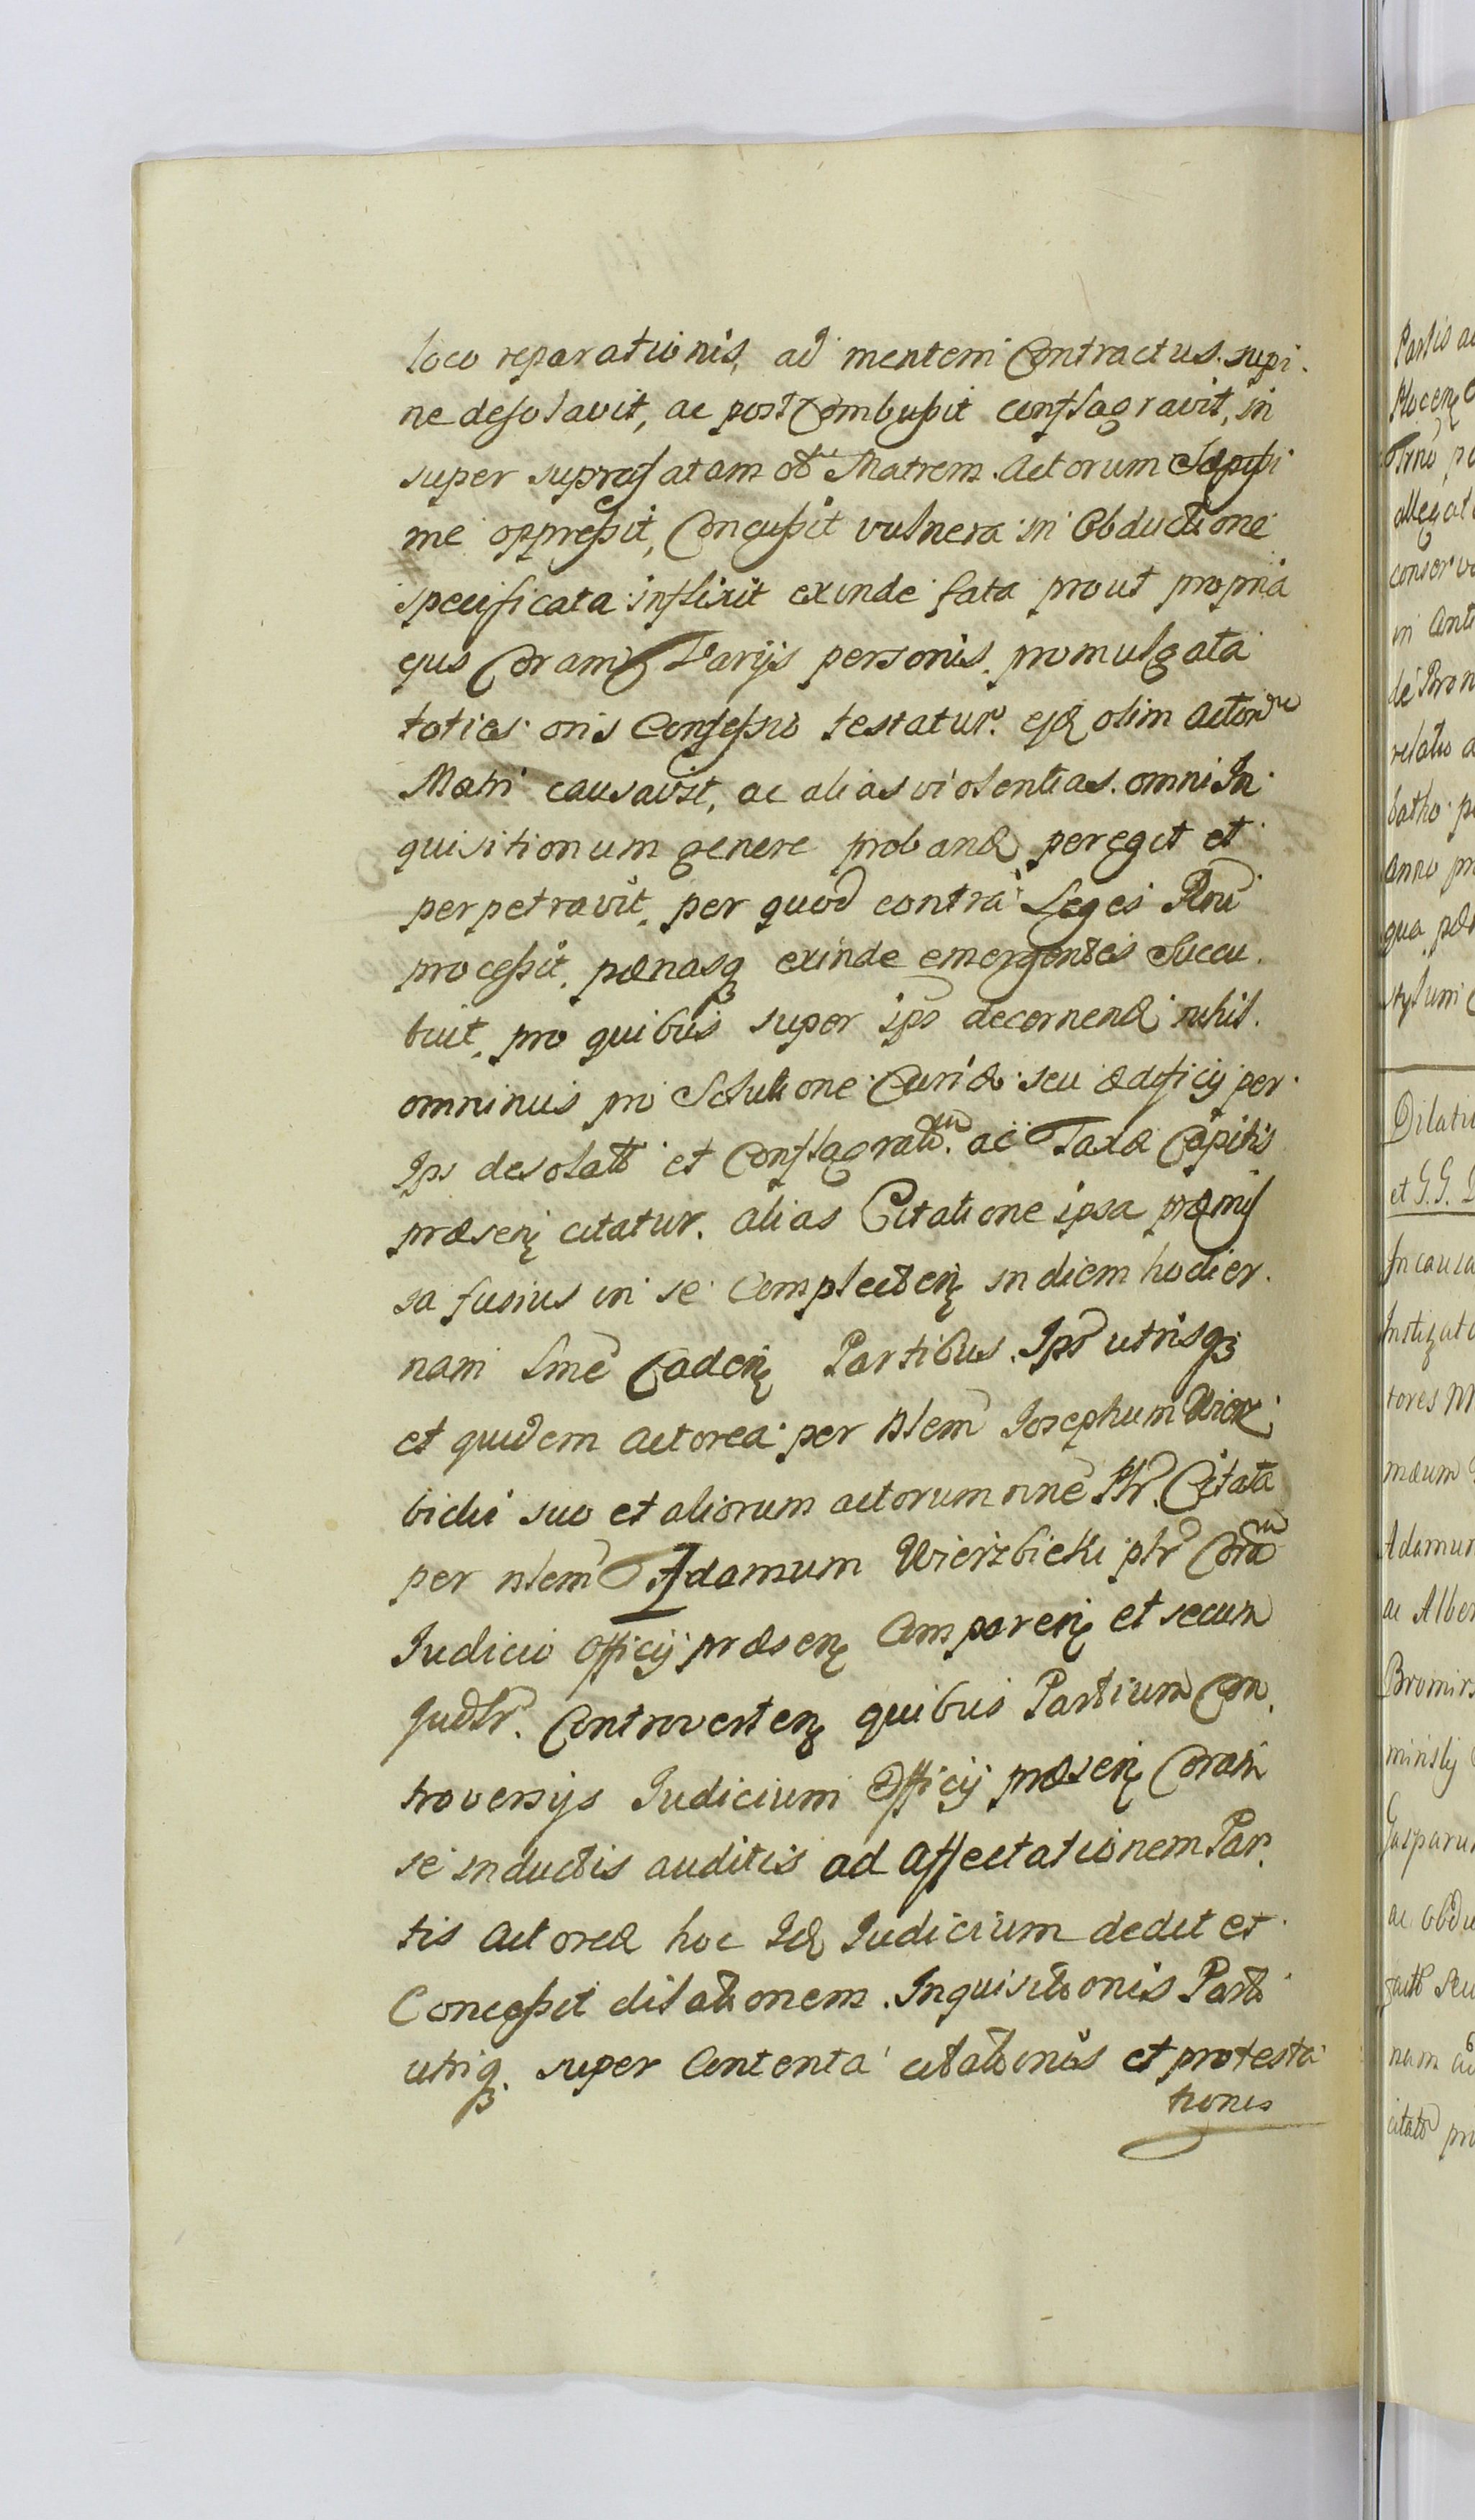 loco reparationis, ad mentem Contractus supi
ne desolavit, ac post Combussit conflagravit, in
super suprafatam Matrem Actorum Sæpissi
me oppressit, Concussit vulnera in Obductione
specificata inflixit exinde fata prout propria
ejus Coram Varijs personis promulgata
toties oris Confessio testatur. olim
Matri causavit, ac alias violentias omni In
quisitionum genere proband peregit et
perpetravit, per quod contra Leges
processit, pænasq exinde emergentes Succu
buit, pro quibus super ips decernend nihil
ominus pro Solutione Curiæ seu ædificij per
Ips desolat et Conflagrat ac Taxæ Capitis
præsen citatur. alias Citatione ipsa præmis
sa fusius in se Complecten in diem hodier
nam Caden Partibus Ips utrisq
et quidem Actorea per Nlem Josephum Wierz
bicki suo et aliorum actorum nne Citata
per Nlem Adamum Wierzbicki ptr Coram
Judicio Officij præsen Comparen et secum
Judlr. Controverten quibus Partium Con
troversijs Judicium Officij præsen Coram
se inductis auditis ad Affectationem Par
tis Actoreæ hoc Id Judicium dedit et
Concessit dilationem Inquisitionis Parti
utriq super Contenta citationis et protesta
tionis
Partis
allegat
in
de
relatio
anno
qua
et G. G.
In causa
tores
Adamum
ac
citato